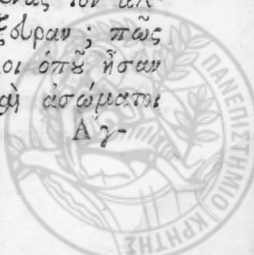 ξευραν; πῶς
οι ὁποῦ ἦσαν
ἀσώματοι
Ἀγ-
ΠΑΝΕΠΙΣΤΗΜΙΟ ΚΡΗΤΗΣ